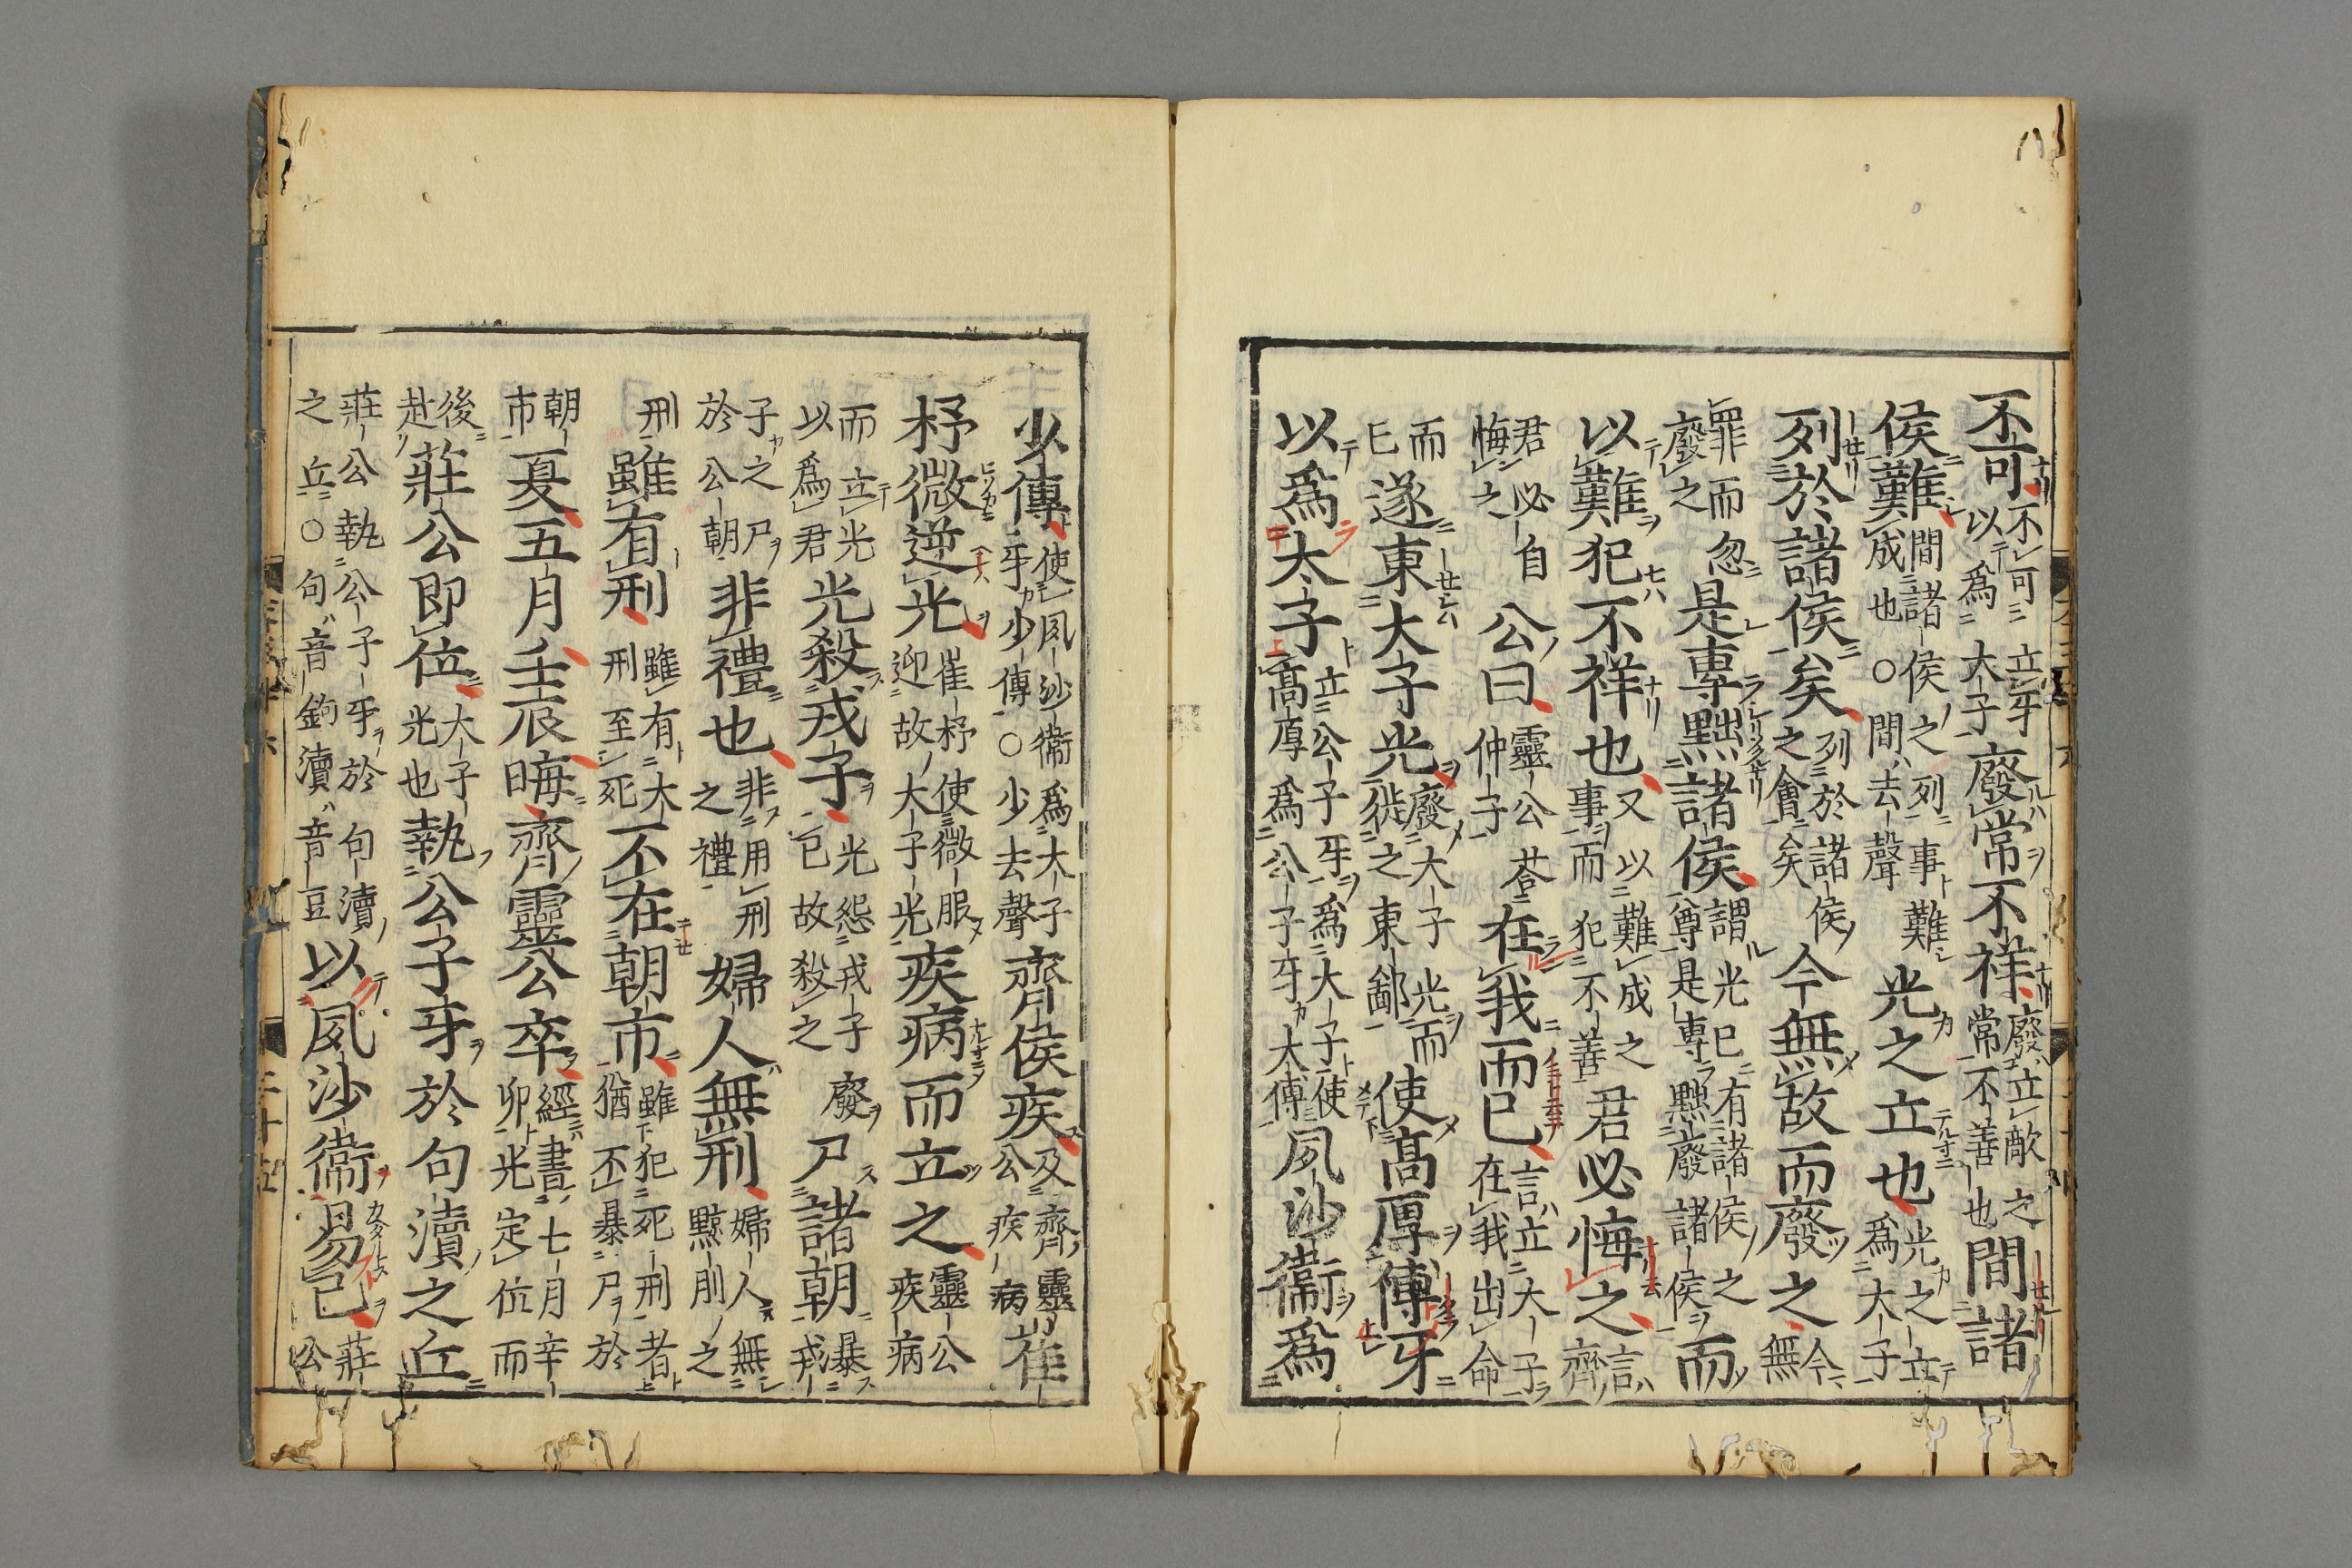 不可不可立牙以爲大子廢常不祥廢立敵之常不善也間諸
侯難間諸侯之列事難成也○間去聲光之立也光之立爲大子
列於諸侯矣列於諸侯之會矣今無故而廢之今無
罪而忽廢之是專黜諸侯謂光已有諸侯之尊是專黜廢諸侯而
以難犯不祥也又以難成之事而犯不善君必悔之言齊
君必自悔之公曰靈公荅仲子在我而已言立大子在我出命
而已遂東大子光廢大子光而徙之東鄙使高厚傅牙
以爲太子立公子牙爲大子使高厚爲公子牙太傅夙沙衞爲
少傅使夙沙衞爲大子牙少傅○少去聲齊侯疾及齊靈公疾病崔
杼微逆光崔杼使微服迎故大子光疾病而立之靈公疾病
而立光以爲君光殺戎子光怨戎子廢已故殺之尸諸朝暴戎
子之尸於公朝非禮也非用刑之禮婦人無刑婦人無黥刖之
刑雖有刑雖有大刑至死不在朝市雖犯死刑者猶不暴尸於
朝市夏五月壬辰晦齊靈公卒經書七月辛卯光定位而
後赴莊公即位大子光也執公子牙於句瀆之丘
莊公執公子牙於句瀆之丘○句音鉤瀆音豆以夙沙衞易已莊公